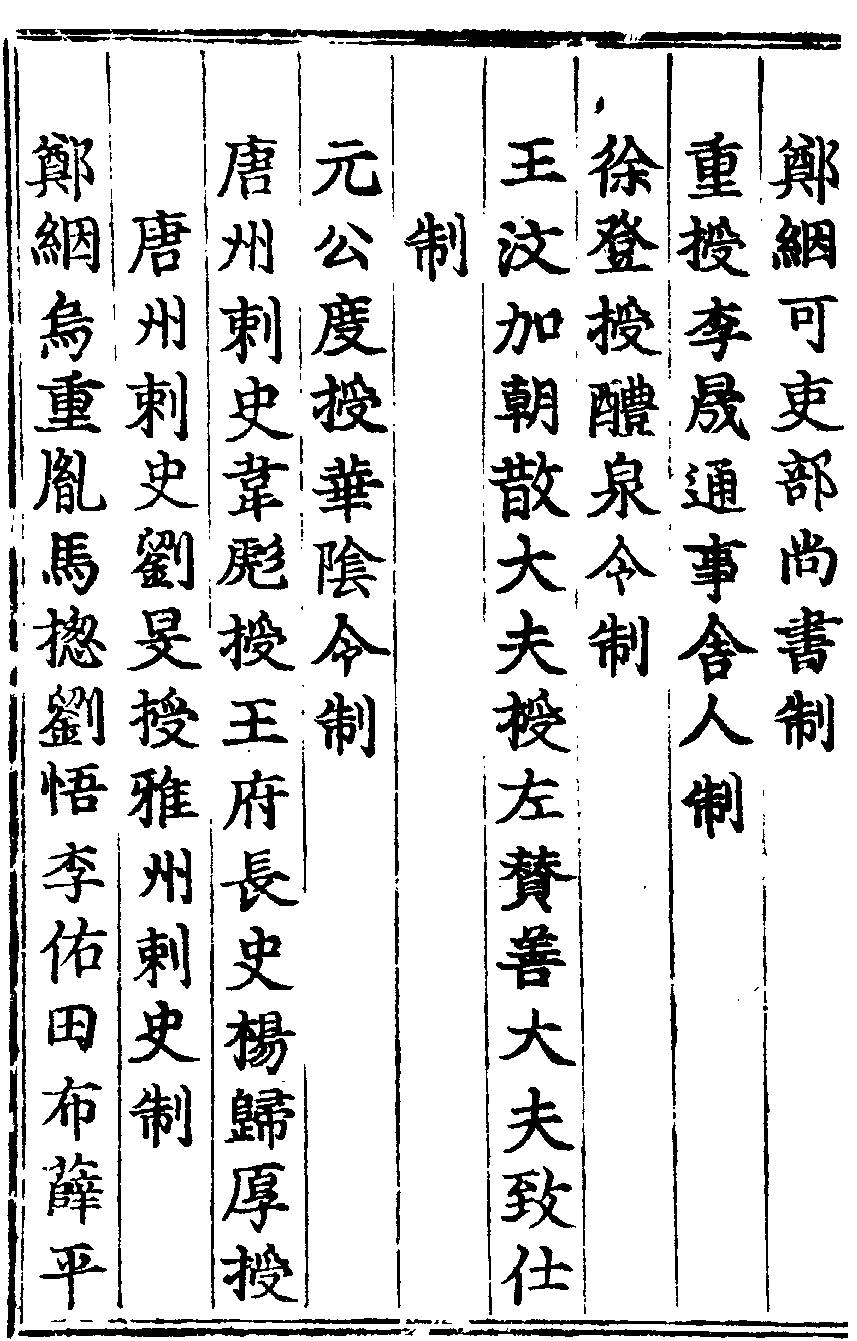 鄭絪可吏部尚書制
重授李晟通事舍人制
徐登授醴泉令制
王汶加朝散大夫授左贊善大夫致仕
制
元公度授華陰令制
唐州刺史韋彪授王府長史楊歸厚授
唐州刺史劉旻授雅州刺史制
鄭絪烏重胤馬揔劉悟李佑田布薛平